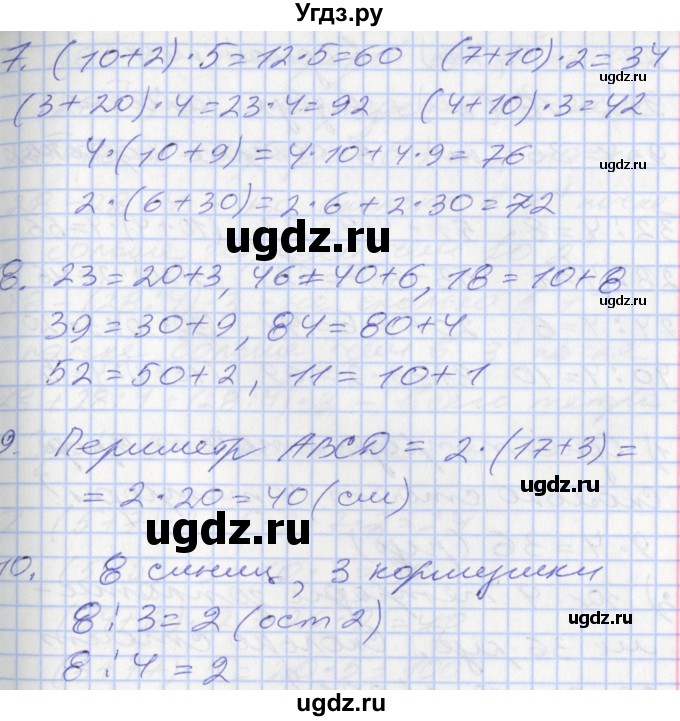 Угдз.ру
7. (10+2)·5=12·5=60 (7+10)·2=34
ugdz.ru
(3+20)·4=23·4=92 (4+10)·3=42
4·(10+9)=4·10+4·9=76
ugdz.ru
2·(6+30)=2·6+2·30=72
ugdz.ru
8. 23=20+3, 46=40+6, 18=10+8
ugdz.ru
39=30+9, 84=80+4
52=50+2, 11=10+1
9. Периметр ABCD = 2·(17+3)=
=2·20=40(см)
ugdz.ru
ugdz.ru
10. 8 синиц, 3 кормушки
8:3=2(ост 2)
ugdz.ru
8:4=2
ugdz.ru